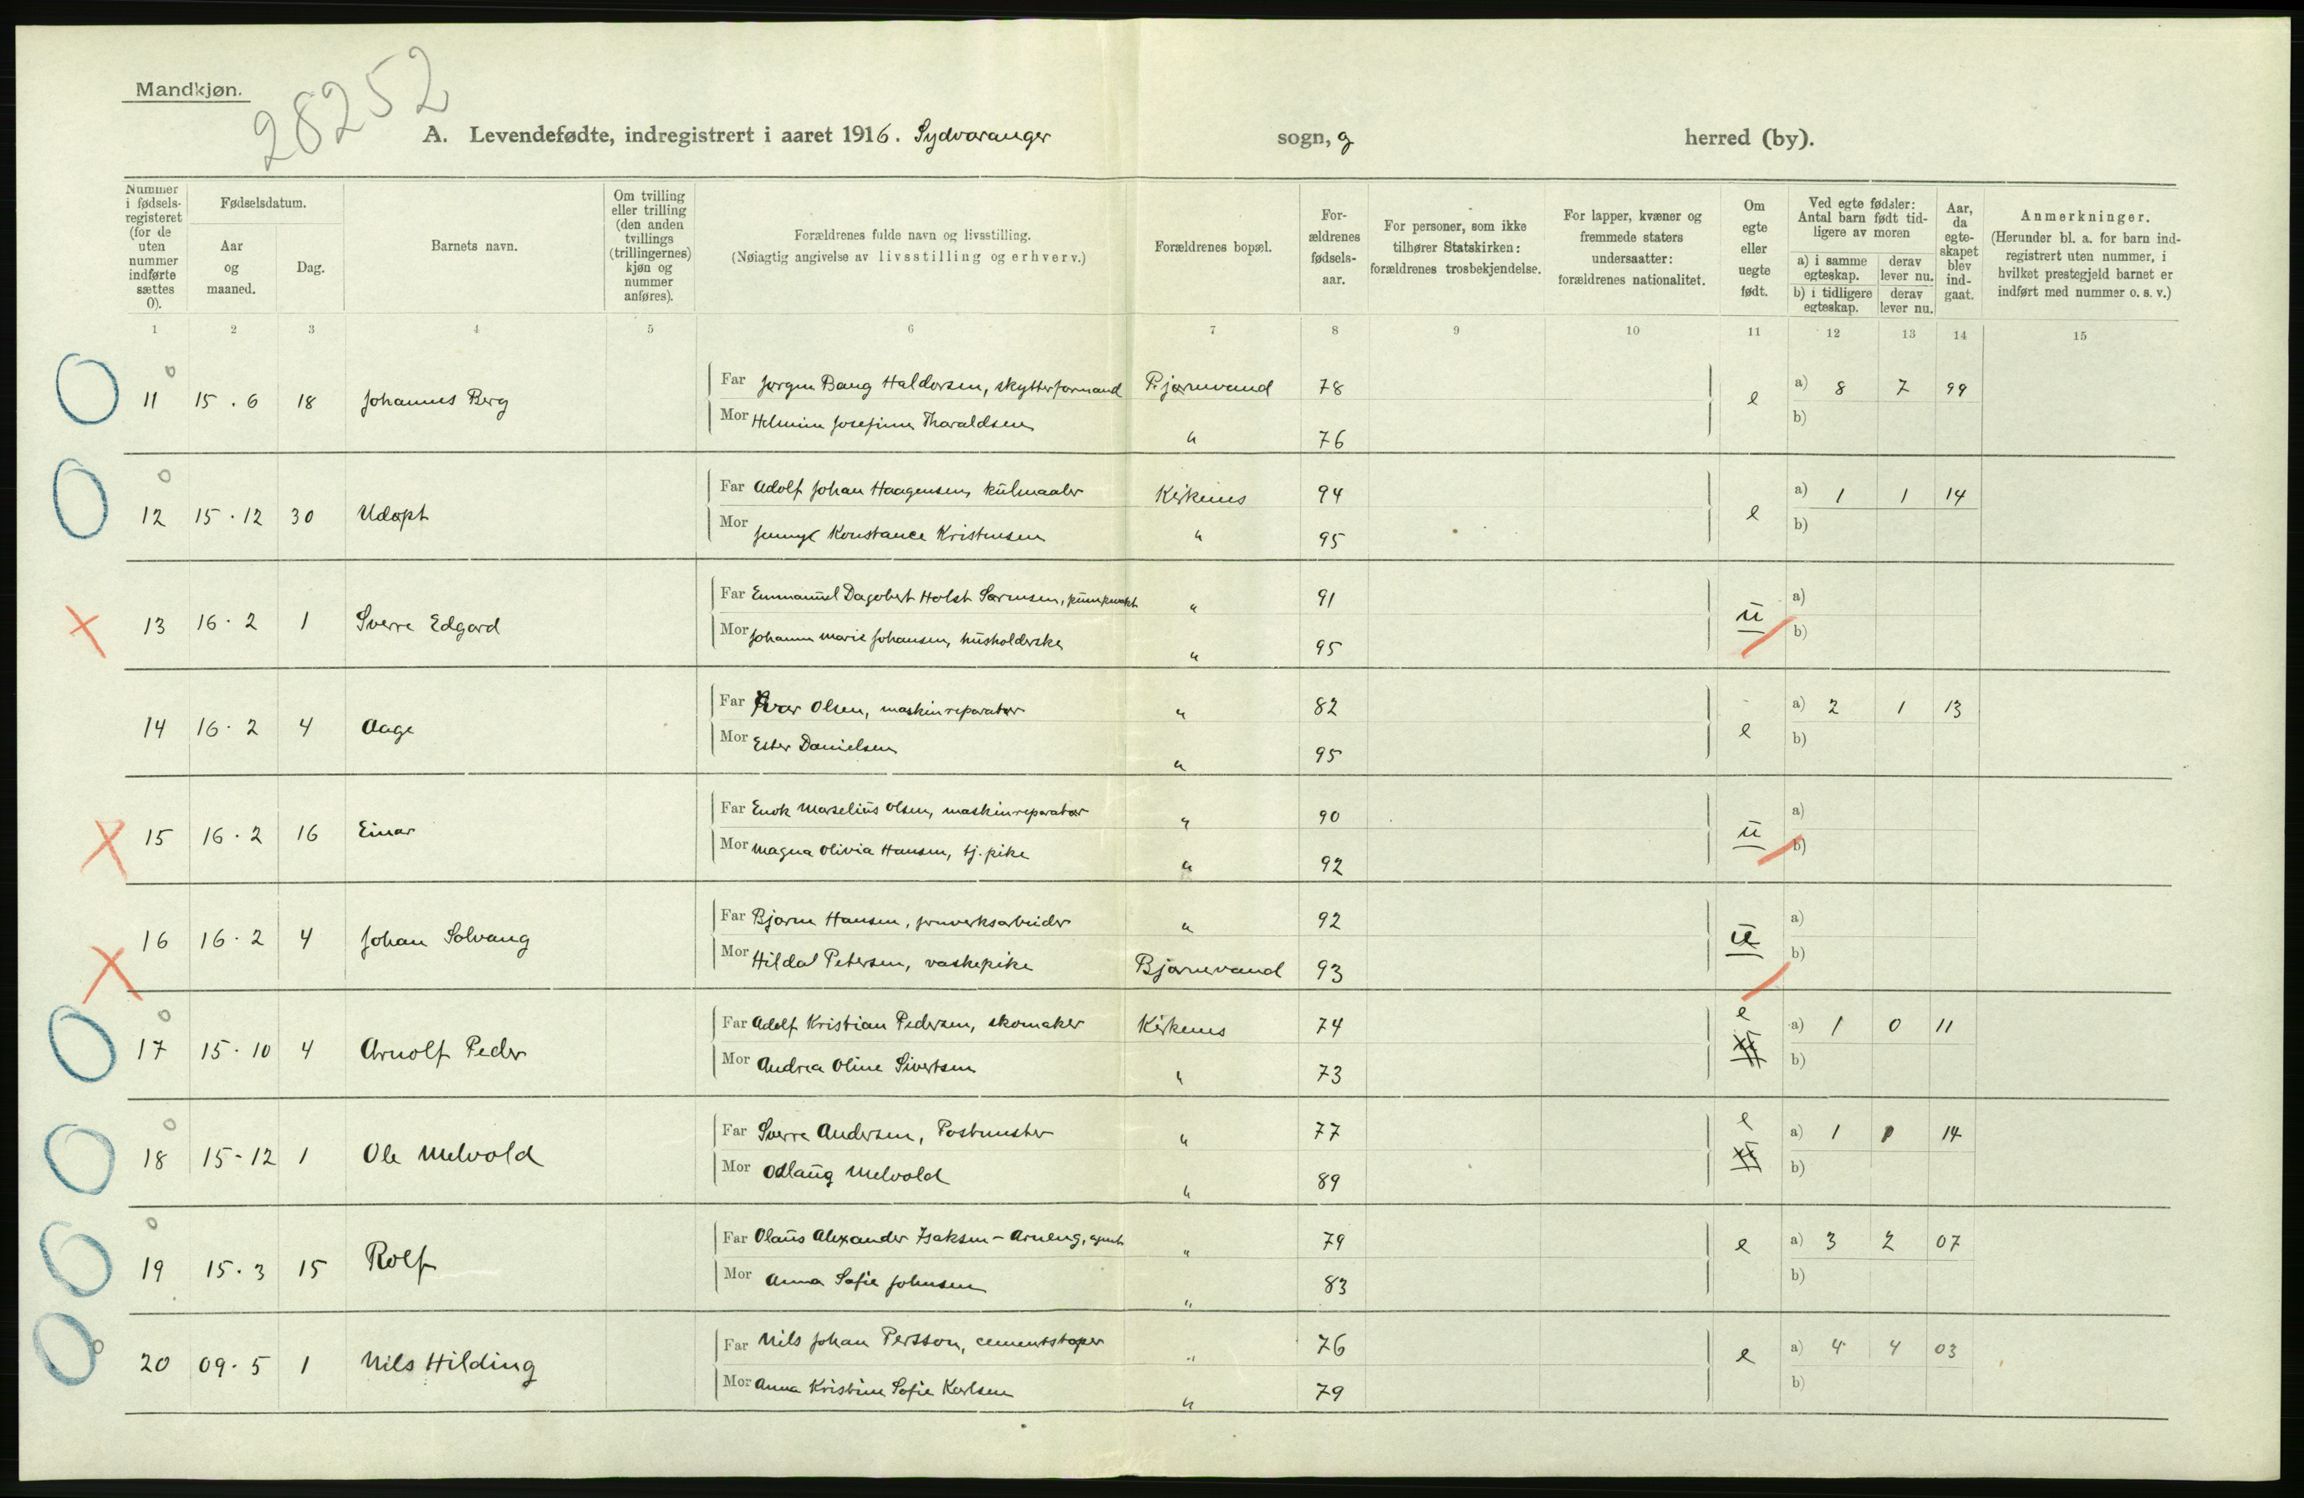 Mandkjøn.
28252
A. Levendefødte, indregistrert i aaret 1916. Sydvaranger sogn, g herred (by).
Nummer i fødselsregisteret (for de uten nummer indførte sættes 0).
Fødselsdatum.
Aar og maaned.
Dag.
Barnets navn.
Om tvilling eller trilling (den anden tvillings (trillingernes) kjøn og nummer anføres).
Forældrenes fulde navn og livsstilling.
(Nøiagtig angivelse av livsstilling og erhverv.)
Forældrenes bopæl.
Forældrenes fødselsaar.
For personer, som ikke tilhører Statskirken: forældrenes trosbekjendelse.
For lapper, kvæner og fremmede staters undersaatter: forældrenes nationalitet.
Om egte eller uegte født.
Ved egte fødsler: Antal barn født tidligere av moren
a) i samme egteskap. derav lever nu.
b) i tidligere egteskap. derav lever nu.
Aar, da egteskapet blev indgaat.
Anmerkninger.
(Herunder bl. a. for barn indregistrert uten nummer, i hvilket prestegjeld barnet er indført med nummer o. s. v.)
1 2 3 4 5 6 7 8 9 10 11 12 13 14 15
0 0
11 15.6 18 Johannes Berg Far Jørgen Bang Haldorsen, skytterformand Bjørnevand 78 e a) 8 7 99
Mor Helmine Josefine Tharaldsen " 76 b)
0 0
12 15.12 30 Udøpt Far Adolf Johan Haagensen, kulmaaler Kirkenes 94 e a) 1 1 14
Mor Jenny Konstance Kristensen " 95 b)
13 16.2 1 Sverre Edgard Far Emmanuel Dagobert Holst Sørensen, " 91 u a)
Mor Johanne Marie Johansen, husholderske " 95 b)
14 16.2 4 Aage Far Ivar Olsen, maskinreparatør " 82 e a) 2 1 13
Mor Ester Danielsen " 95 b)
15 16.2 16 Einar Far Enok Marselius Olsen, maskinreparatør " 90 u a)
Mor Magna Olivia Hansen, tj.pike " 92 b)
16 16.2 4 Johan Solvang Far Bjarne Hansen, jernverksarbeider " 92 u a)
Mor Hilda Petersen, vaskepike Bjørnevand 93 b)
0 0
17 15.10 4 Arnolf Peder Far Adolf Kristian Pedersen, skomaker Kirkenes 74 e a) 1 0 11
Mor Andrea Oline Sivertsen " 73 b)
0 0
18 15-12 1 Ole Melvold Far Sverre Andersen, Postmester " 77 e a) 1 1 14
Mor Odlaug Melvold " 89 b)
0 0
19 15.3 15 Rolf Far Olaus Alexander Isaksen-Arneng, agent " 79 e a) 3 2 07
Mor Anna Sofie Johnsen " 83 b)
0 0
20 09.5 1 Nils Hilding Far Nils Johan Persson, cementstøper " 76 e a) 4 4 03
Mor Anna Kristine Sofie Karlsen " 79 b)